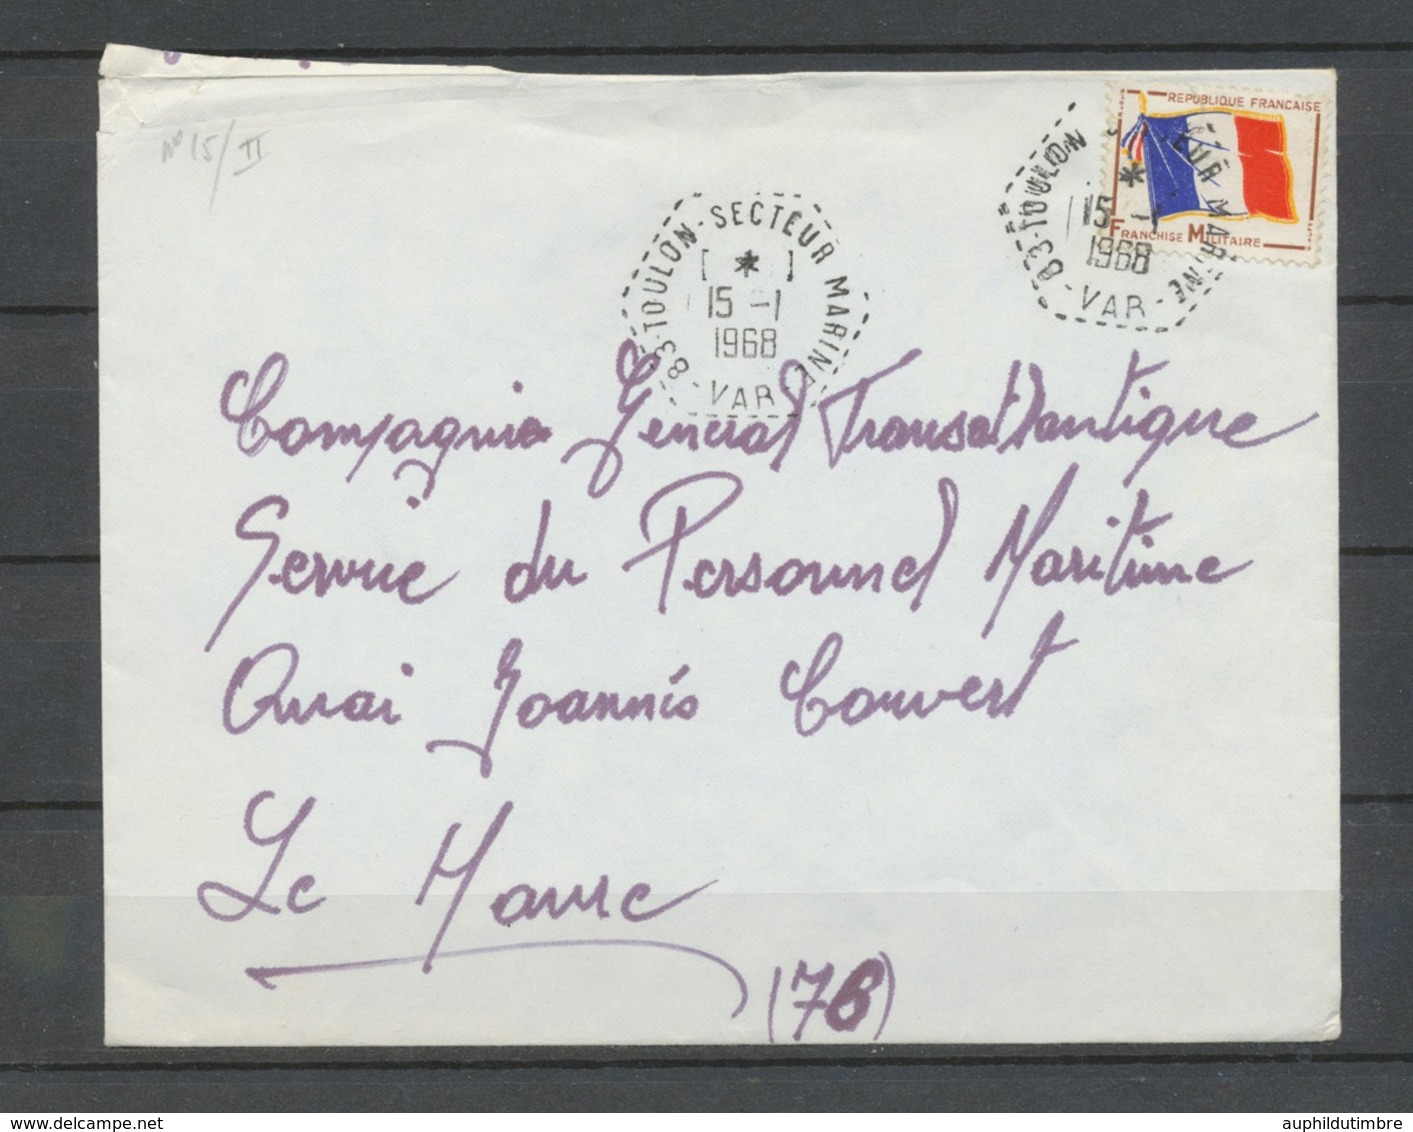 N° 15/II
REPUBLIQUE FRANCAISE
FRANCHISE MILITAIRE
83-TOULON-SECTEUR MARINE
*
15 -1
1968
-VAR-
83-TOULON SECTEUR MARINE
*
15 -1
1968
-VAR-
Compagnie General Transatlantique
Service du Personnel Maritime
Quai Joannis Couvert
Le Havre
(76)
www.delcampe.net
auphildutimbre